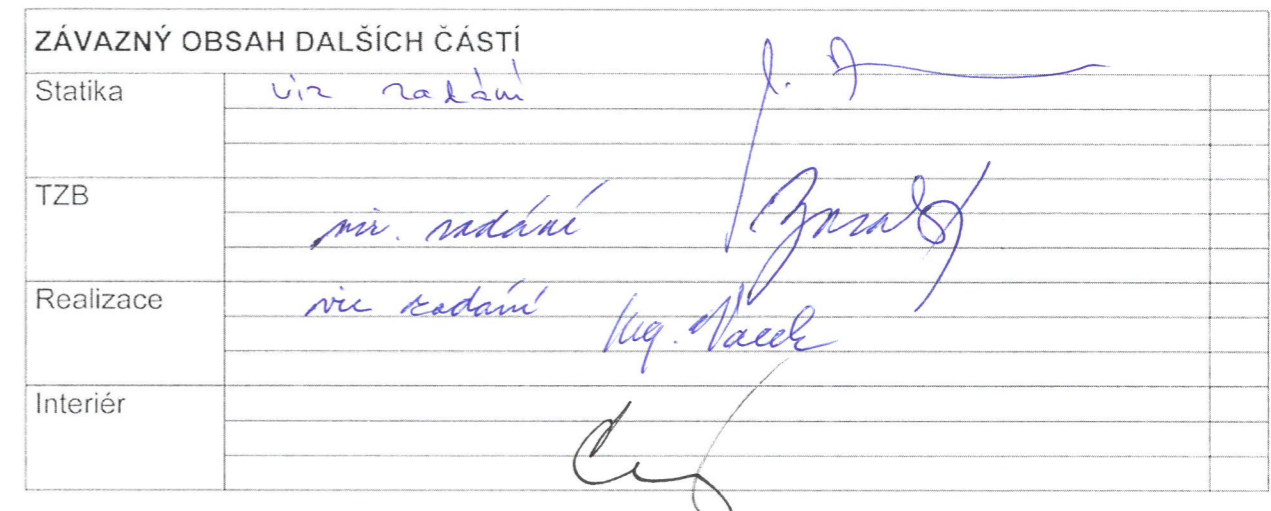 ZÁVAZNÝ OBSAH DALŠÍCH ČÁSTÍ
Statika viz zadání
TZB viz. zadání
Realizace viz zadání
Ing. Vacek
Interiér